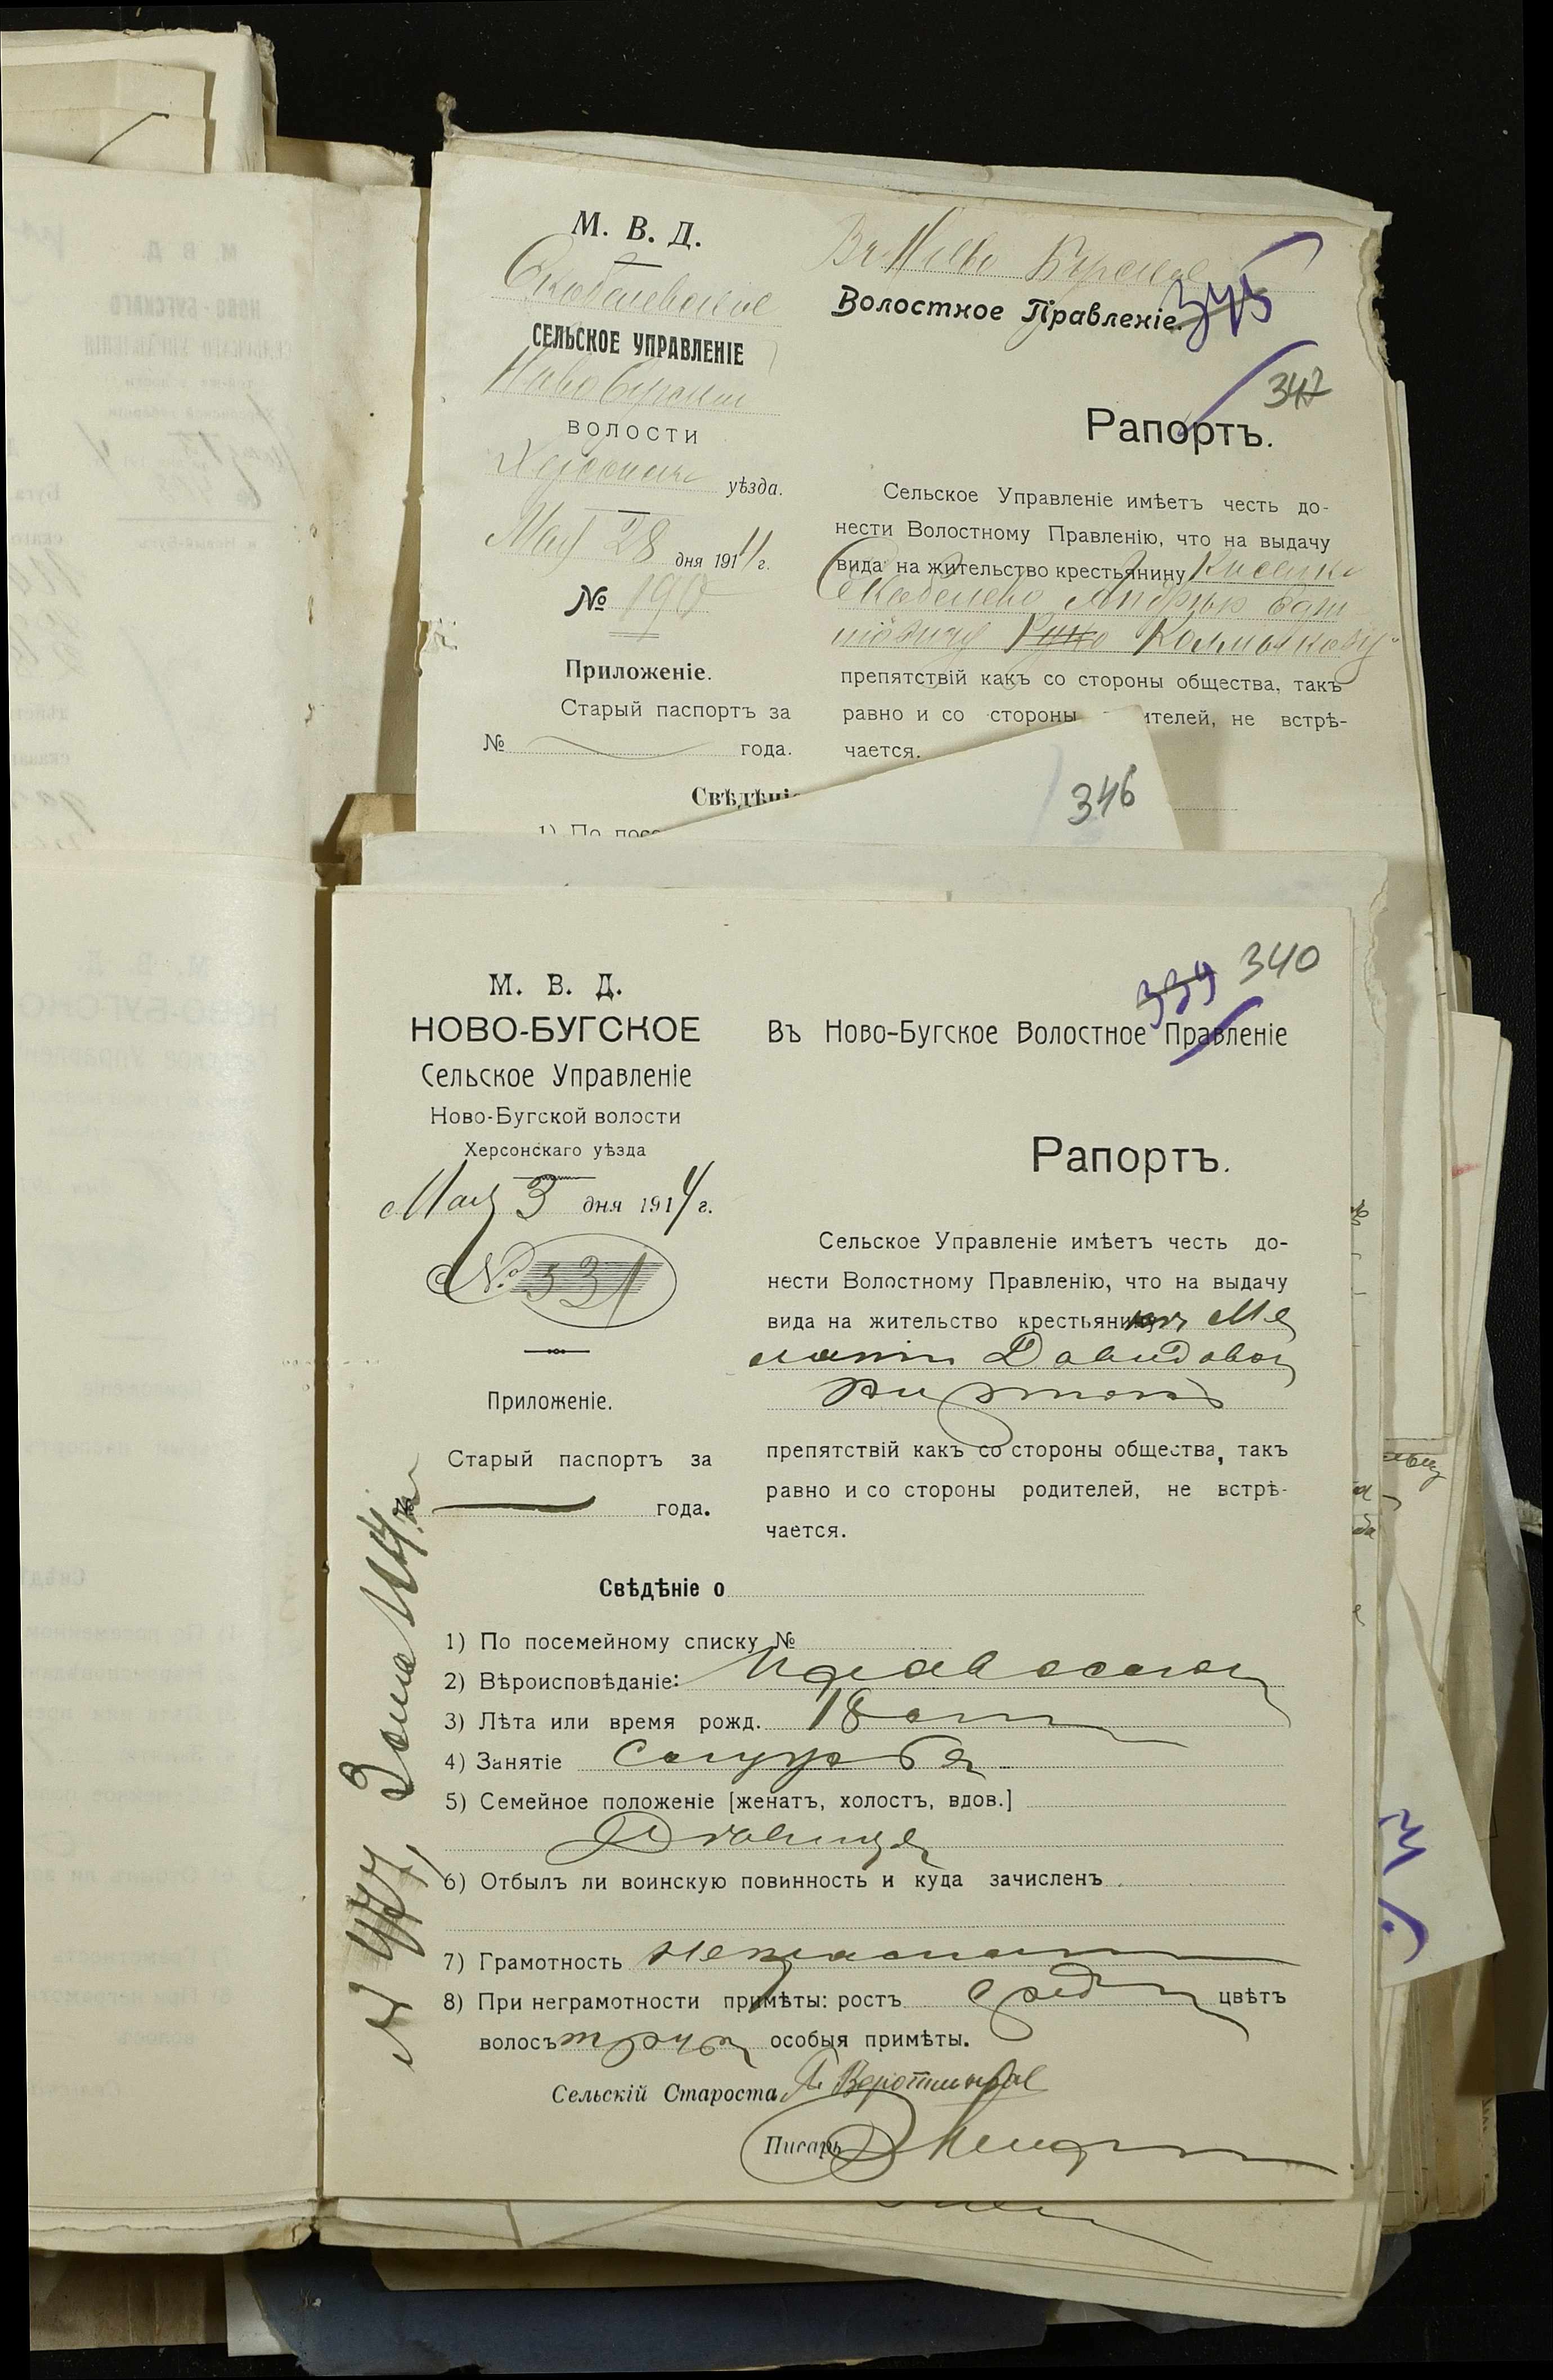 М. В. Д.
Скобелевское
СЕЛЬСКОЕ УПРАВЛЕНІЕ
Ново Бугской
ВОЛОСТИ
уѣзда.
Мая 28 дня 1914 г.
№ 190
Приложеніе.
Старый паспортъ за
№ года.
Въ Ново Бугское
Волостное Правленіе.
345
347
Рапортъ.
Сельское Управленіе имѣетъ честь до-
нести Волостному Правленію, что на выдачу
вида на жительство крестьянину
Скобелево Андрею
Колмыкову
препятствій какъ со стороны общества, такъ
равно и со стороны ителей, не встрѣ-
чается.
Свѣдѣніе
1) По посе
346
339 340
М. В. Д.
НОВО-БУГСКОЕ
Сельское Управленіе
Ново-Бугской волости
Херсонскаго уѣзда
Мая 3 дня 1914 г.
№ 531
Приложеніе.
Старый паспортъ за
№ года.
Въ Ново-Бугское Волостное Правленіе
Рапортъ.
Сельское Управленіе имѣетъ честь до-
нести Волостному Правленію, что на выдачу
вида на жительство крестьянкѣ Ме
ланіи Давидовой
препятствій какъ со стороны общества, такъ
равно и со стороны родителей, не встрѣ-
чается.
Свѣдѣніе о
1) По посемейному списку №
2) Вѣроисповѣданіе: Православной
3) Лѣта или время рожд. 18 лѣтъ
4) Занятіе служба
5) Семейное положеніе [женатъ, холостъ, вдов.]
Дѣвица
6) Отбылъ ли воинскую повинность и куда зачисленъ
7) Грамотность неграмотн
8) При неграмотности примѣты: ростъ средн цвѣтъ
волосъ особыя примѣты.
Сельскій Староста
Писарь